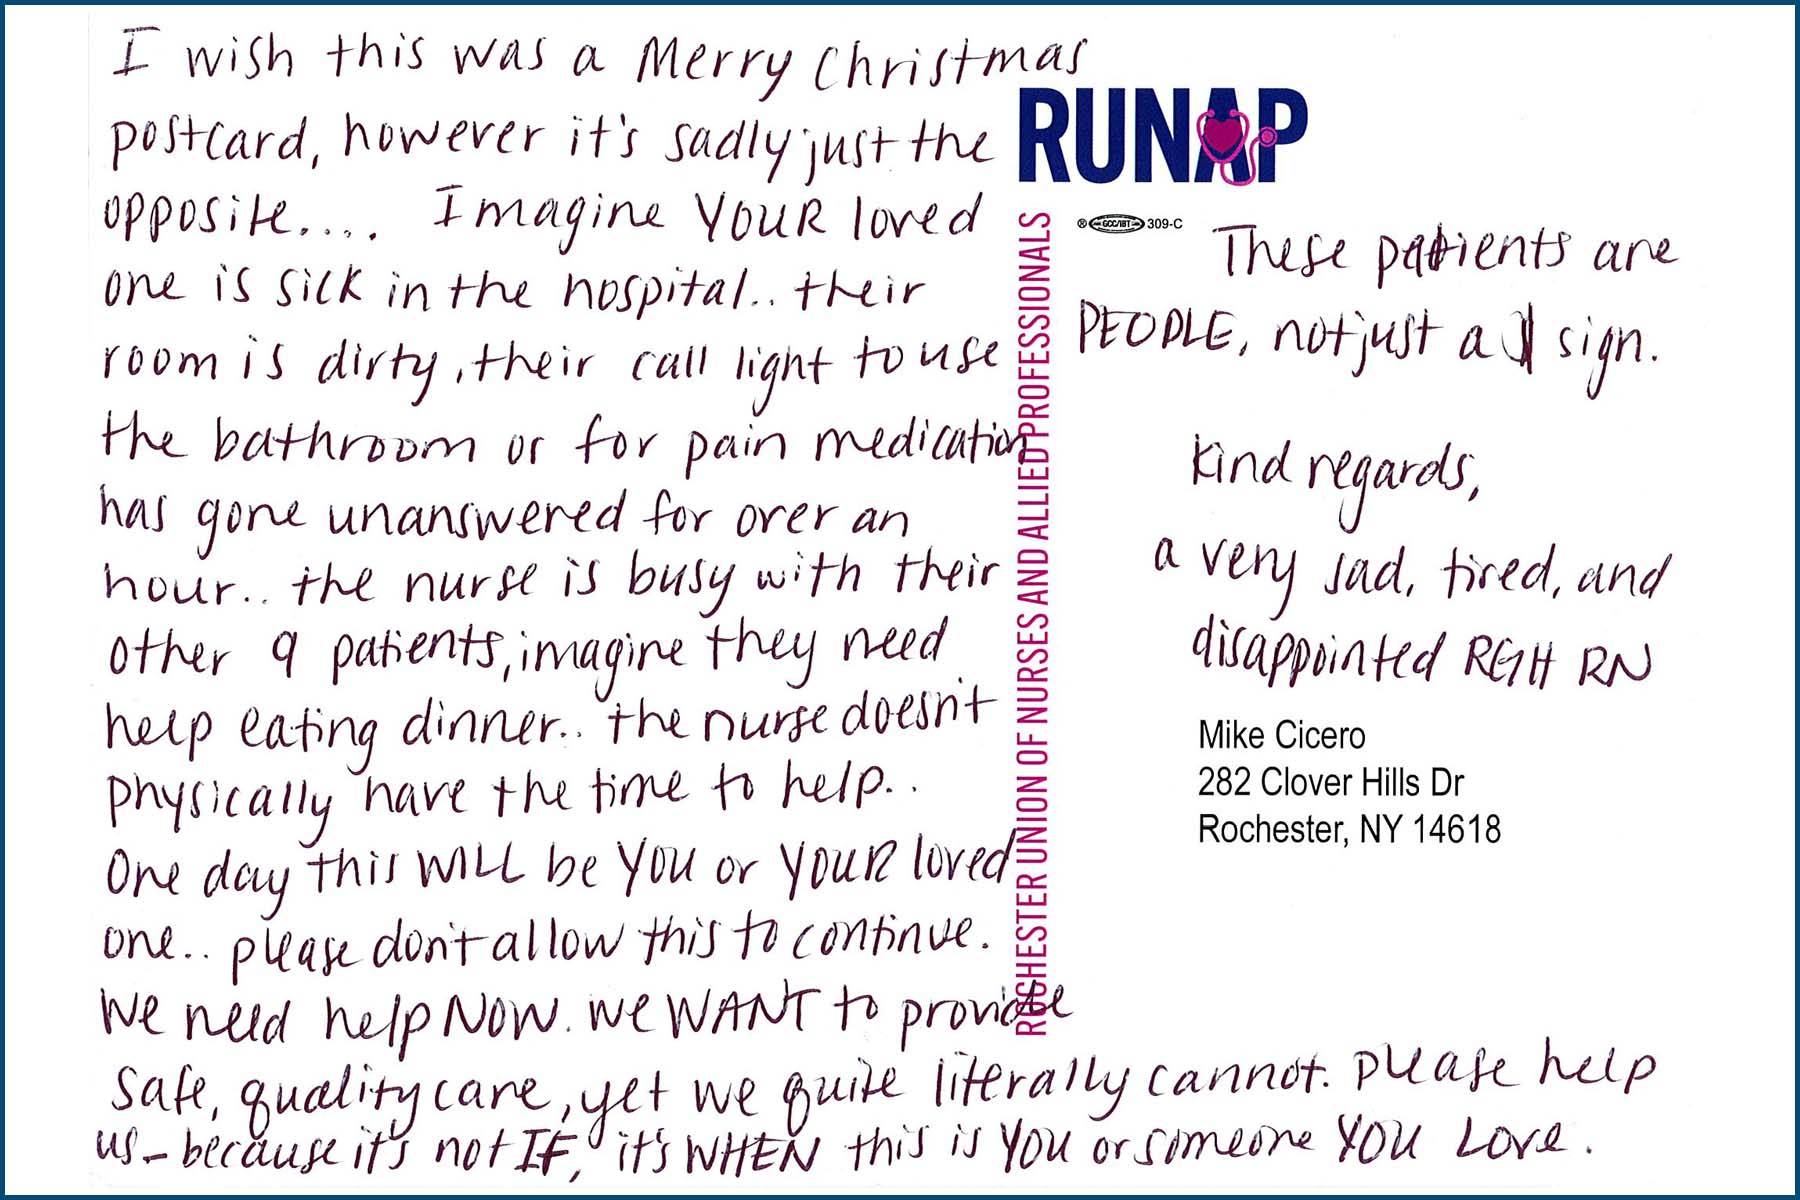 I wish this was a Merry Christmas
postcard, however it's sadly just the
opposite.... Imagine YOUR loved
one is sick in the hospital.. their
room is dirty, their call light to use
the bathroom or for pain medication
has gone unanswered for over an
hour.. the nurse is busy with their
other 9 patients, imagine they need
help eating dinner.. the nurse doesn't
physically have the time to help..
One day this WILL be YOU or YOUR loved
one.. please don't allow this to continue.
We need help NOW. We WANT to provide
safe, quality care, yet we quite literally cannot. Please help
us - because it's not IF, it's WHEN this is YOU or someone YOU LOVE.
RUNAP
ROCHESTER UNION OF NURSES AND ALLIED PROFESSIONALS
® GCC/IBT 309-C
These patients are
PEOPLE, not just a $ sign.
Kind regards,
a very sad, tired, and
disappointed RGH RN
Mike Cicero
282 Clover Hills Dr
Rochester, NY 14618